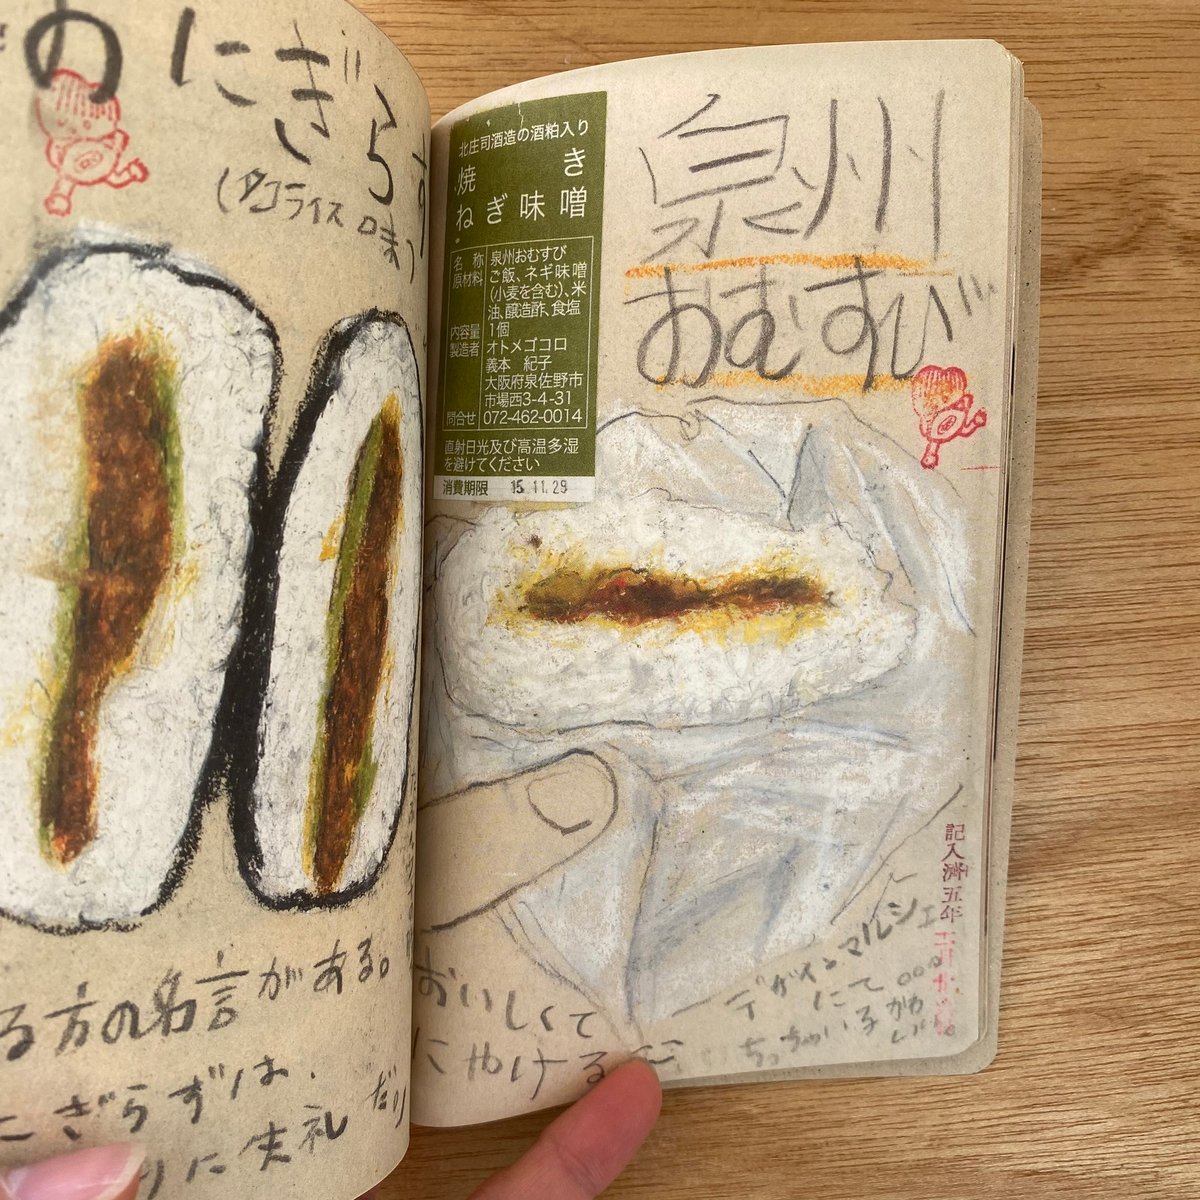 おにぎらす
(タコライス味)
る方の名言がある。
にぎらずは、
りに失礼だり
北庄司酒造の酒粕入り
焼き
ねぎ味噌
名称 泉州おむすび
原材料 ご飯、ネギ味噌
(小麦を含む)、米
油、醸造酢、食塩
内容量 1個
製造者 オトメゴコロ
義本 紀子
大阪府泉佐野市
市場西3-4-31
問合せ 072-462-0014
直射日光及び高温多湿
を避けてください
消費期限 15.11.29
泉州
おむすび
おいしくて
にやける
デザインマルシェ
にて。。。
ちっちゃい子がかわいい。
記入済五年